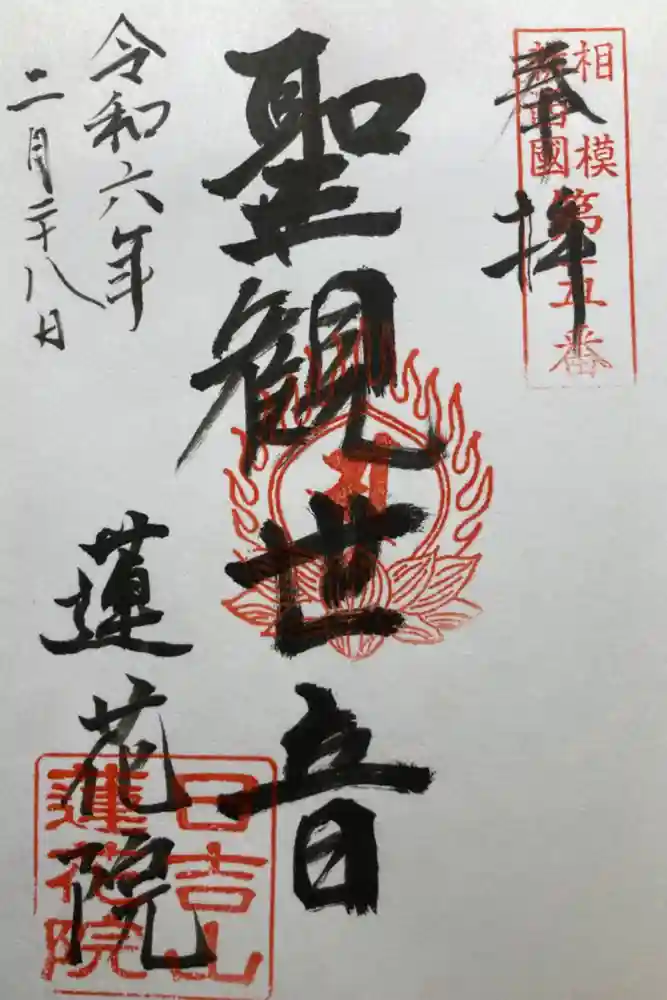 奉拝
相模
國
第十五番
聖観世音
令和六年
二月二十八日
蓮花院
日吉山
蓮花院